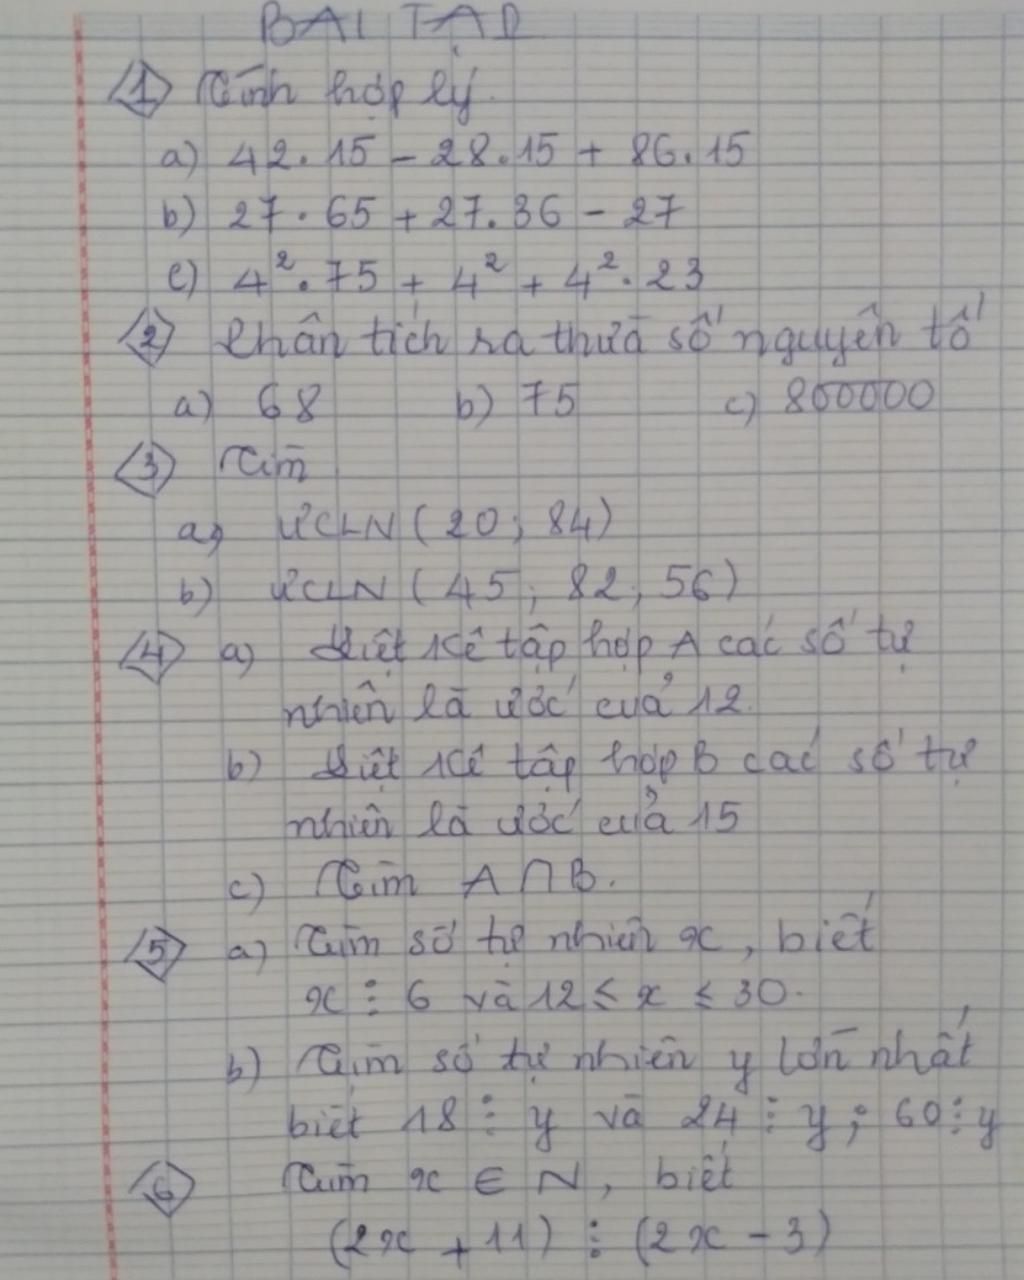 BÀI TẬP
1 Tính hợp lý.
a) 42.15 - 28.15 + 86.15
b) 27.65 + 27.36 - 27
c) 4².75 + 4² + 4².23
2 Phân tích ra thừa số nguyên tố
a) 68 b) 75 c) 800000
3 Tìm
a) ƯCLN (20; 84)
b) ƯCLN (45; 82; 56)
4 a) Liệt kê tập hợp A các số tự
nhiên là ước của 12.
b) Liệt kê tập hợp B các số tự
nhiên là ước của 15
c) Tìm A ∩ B.
5 a) Tìm số tự nhiên x, biết
x ⋮ 6 và 12 ≤ x ≤ 30.
b) Tìm số tự nhiên y lớn nhất
biết 18 ⋮ y và 24 ⋮ y; 60 ⋮ y
6 Tìm x ∈ N, biết
(2x + 11) ⋮ (2x - 3)